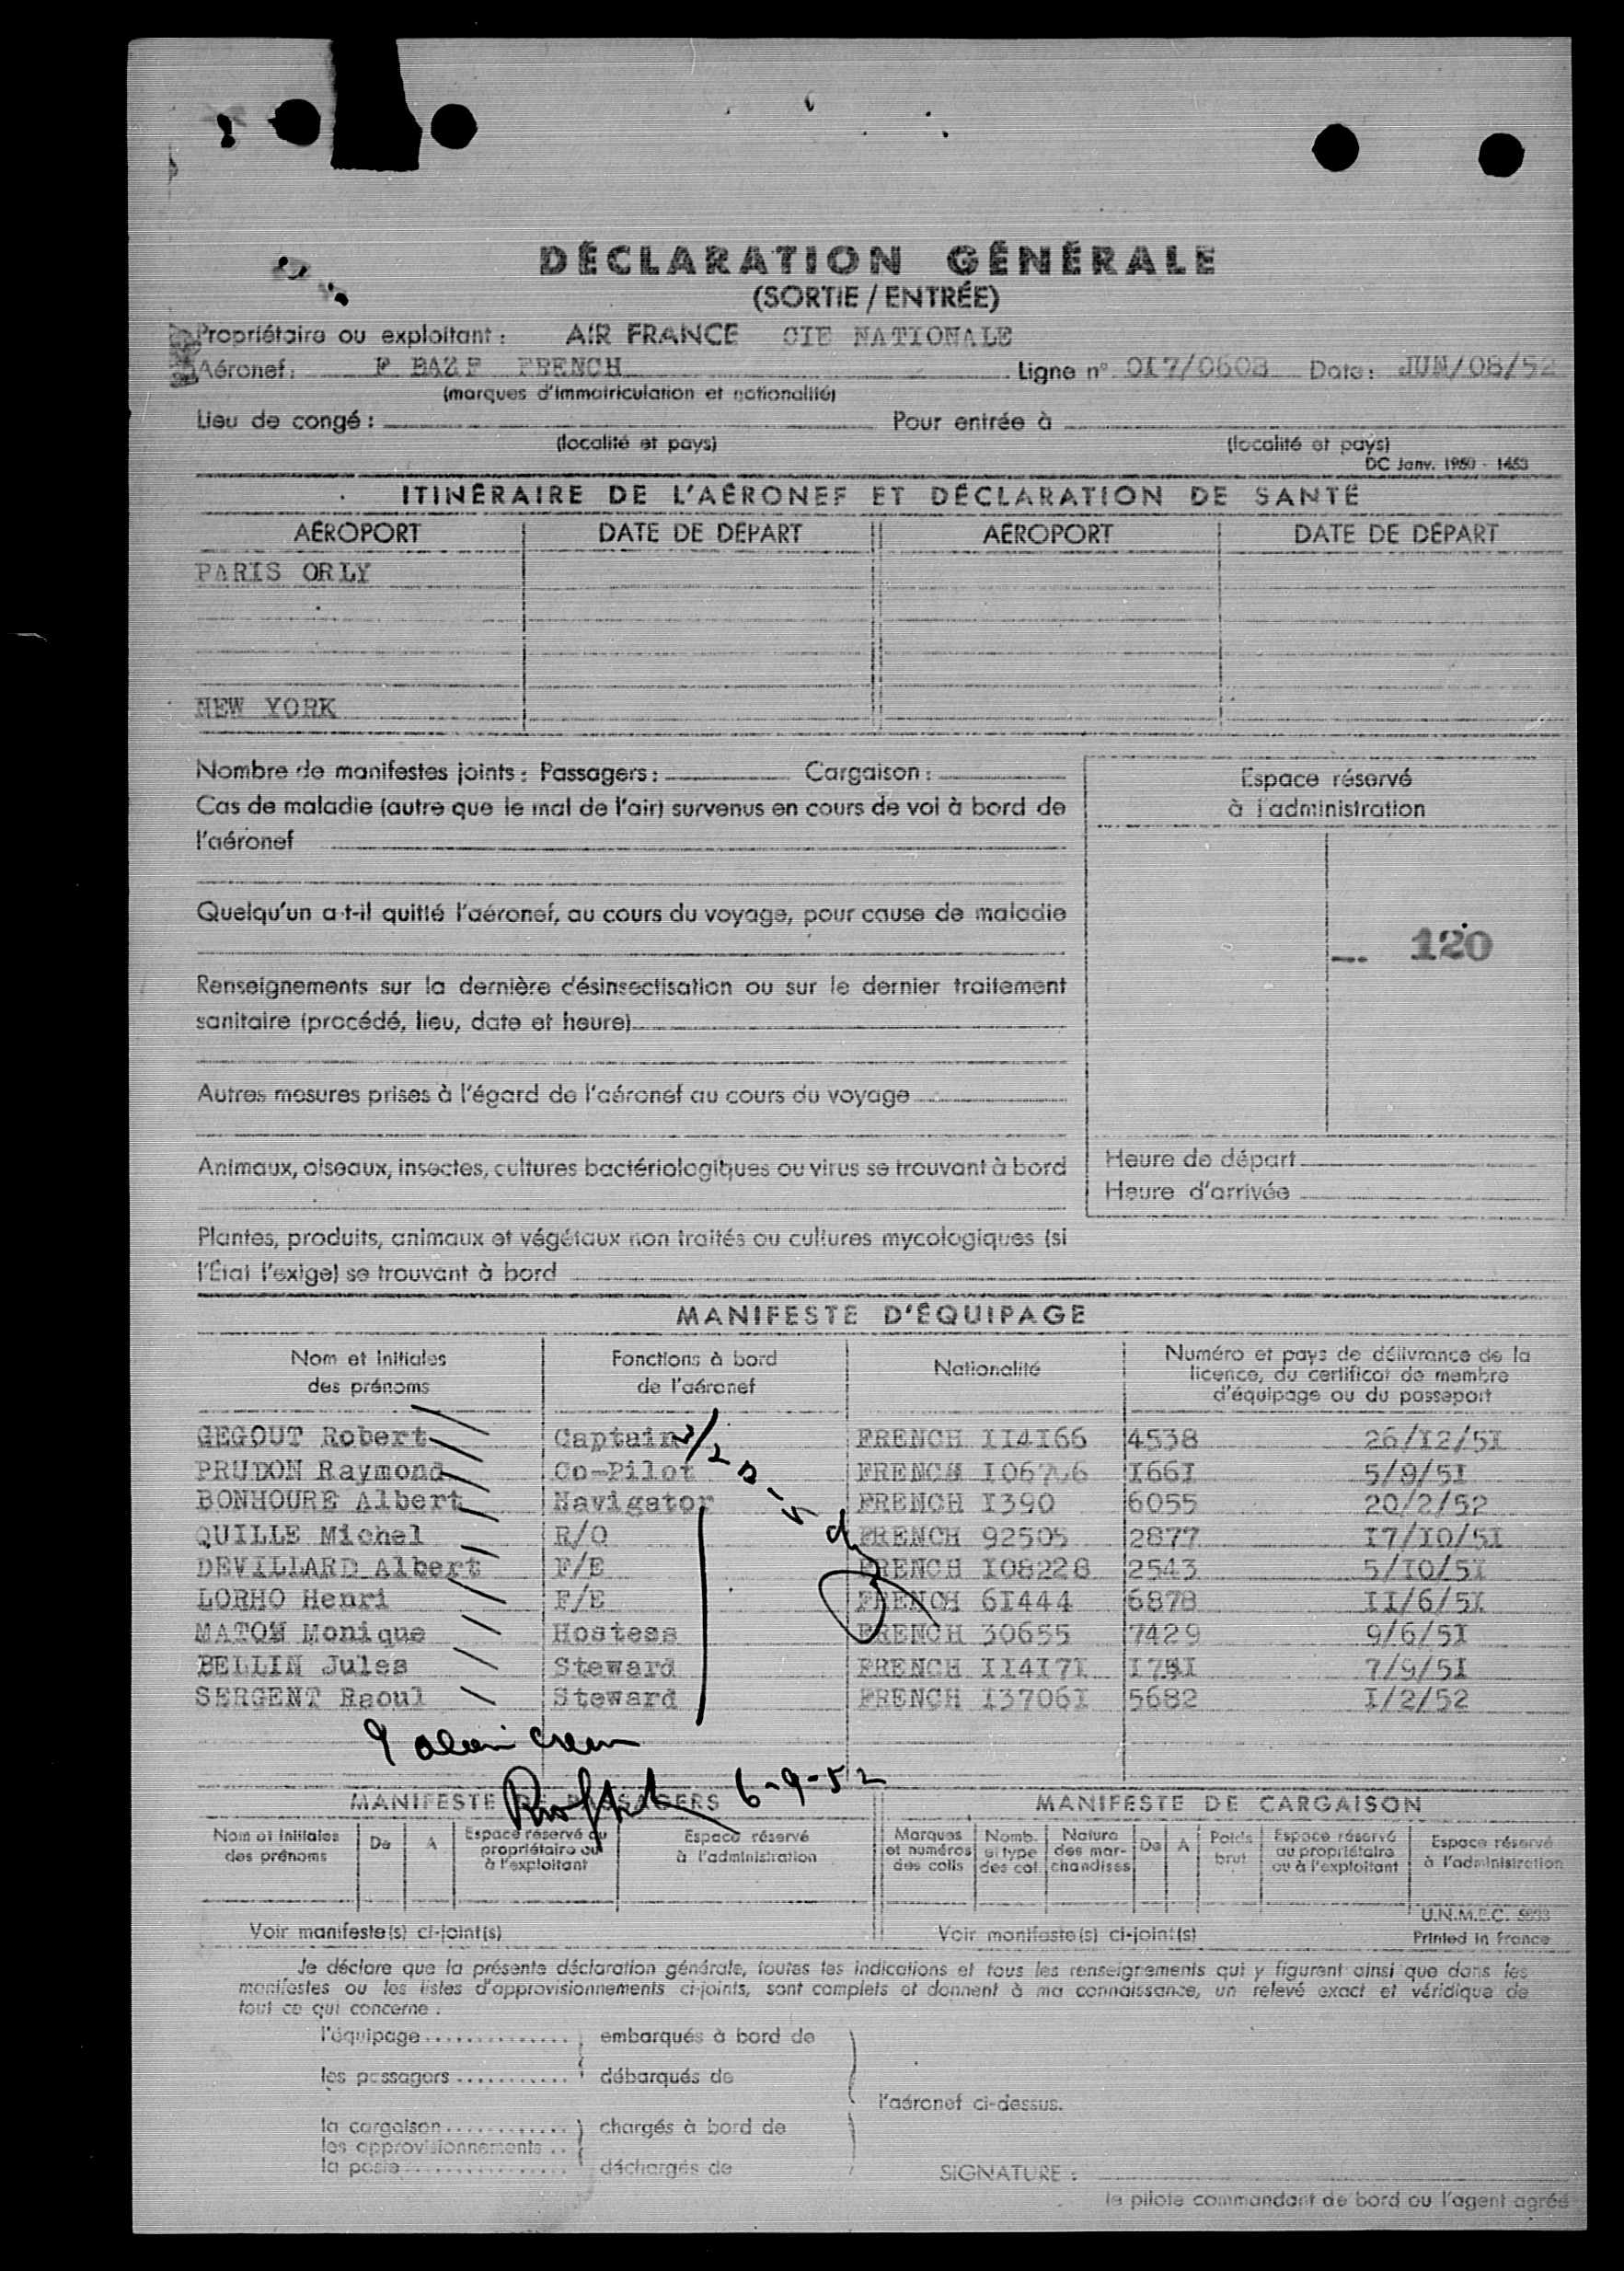 DÉCLARATION GÉNÉRALE
(SORTIE / ENTRÉE)
Propriétaire ou exploitant : AIR FRANCE CIE NATIONALE
Aéronef : F BAZF FRENCH Ligne n° 017/0608 Date : JUN/08/52
(marques d'immatriculation et nationalité)
Lieu de congé : Pour entrée à
(localité et pays) (localité et pays)
DC Janv. 1950 - 1453
ITINÉRAIRE DE L'AÉRONEF ET DÉCLARATION DE SANTÉ
AÉROPORT DATE DE DÉPART AÉROPORT DATE DE DÉPART
PARIS ORLY
NEW YORK
Nombre de manifestes joints : Passagers : Cargaison :
Espace réservé
à l'administration
Cas de maladie (autre que le mal de l'air) survenus en cours de vol à bord de
l'aéronef
Quelqu'un a-t-il quitté l'aéronef, au cours du voyage, pour cause de maladie
120
Renseignements sur la dernière désinsectisation ou sur le dernier traitement
sanitaire (procédé, lieu, date et heure)
Autres mesures prises à l'égard de l'aéronef au cours du voyage
Animaux, oiseaux, insectes, cultures bactériologiques ou virus se trouvant à bord
Heure de départ
Heure d'arrivée
Plantes, produits, animaux et végétaux non traités ou cultures mycologiques (si
l'État l'exige) se trouvant à bord
MANIFESTE D'ÉQUIPAGE
Nom et initiales des prénoms Fonctions à bord de l'aéronef Nationalité Numéro et pays de délivrance de la licence, du certificat de membre d'équipage ou du passeport
GEGOUT Robert Captain FRENCH II4I66 4538 26/I2/5I
PRUDON Raymond Co-Pilot FRENCH I66I 5/9/5I
BONHOURE Albert Navigator FRENCH I390 6055 20/2/52
QUILLE Michel R/O FRENCH 92505 2877 I7/I0/5I
DEVILLARD Albert F/E FRENCH I08228 2543 5/I0/5I
LORHO Henri F/E FRENCH 6I444 6878 II/6/5I
MATON Monique Hostess FRENCH 30655 7429 9/6/5I
BELLIN Jules Steward FRENCH II4I7I 7/9/5I
SERGENT Raoul Steward FRENCH I3706I 5682 I/2/52
9 alien crew
6-9-52
MANIFESTE DE PASSAGERS MANIFESTE DE CARGAISON
Nom et initiales des prénoms De A Espace réservé au propriétaire ou à l'exploitant Espace réservé à l'administration Marques et numéros des colis Nomb. et type des col. Nature des marchandises De A Poids brut Espace réservé au propriétaire ou à l'exploitant Espace réservé à l'administration
U.N.M.E.C.
Voir manifeste(s) ci-joint(s) Voir manifeste(s) ci-joint(s) Printed in France
Je déclare que la présente déclaration générale, toutes les indications et tous les renseignements qui y figurent ainsi que dans les
manifestes ou les listes d'approvisionnements ci-joints, sont complets et donnent à ma connaissance, un relevé exact et véridique de
tout ce qui concerne :
l'équipage embarqués à bord de
les passagers débarqués de
l'aéronef ci-dessus.
la cargaison chargés à bord de
les approvisionnements
la poste déchargés de
SIGNATURE :
le pilote commandant de bord ou l'agent agréé